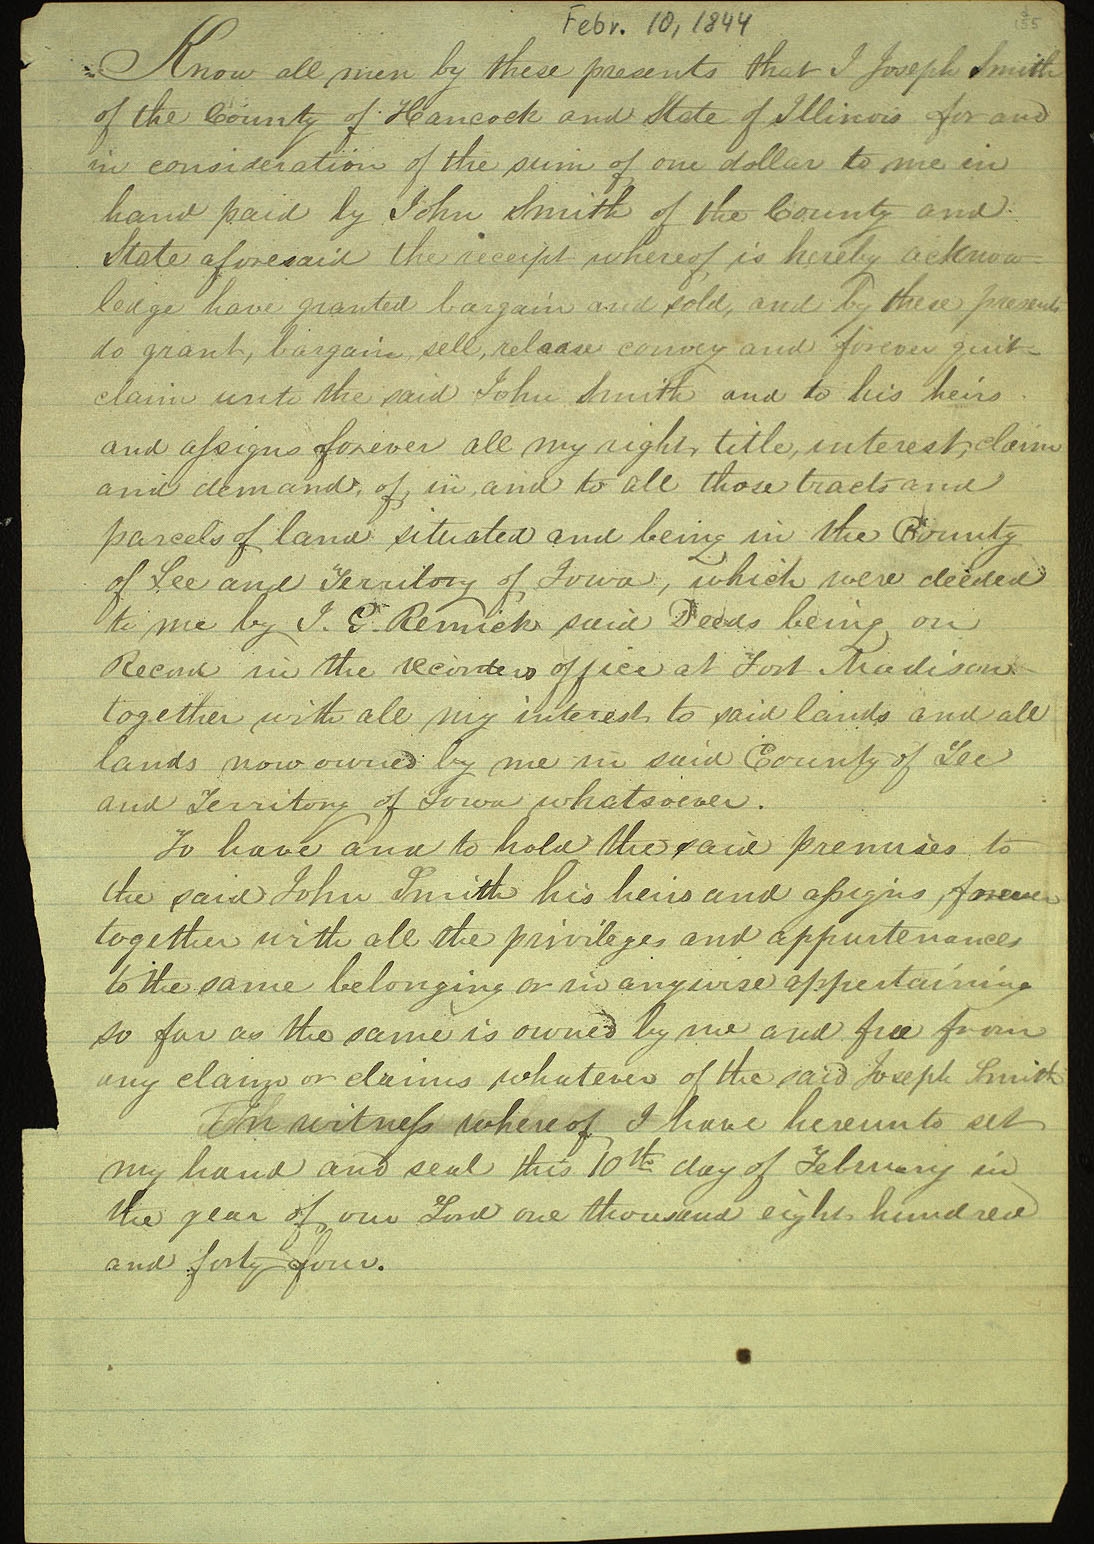 Febr. 10, 1844
155
Know all men by these presents that I Joseph Smith
of the County of Hancock and State of Illinois for and
in consideration of the sum of one dollar to me in
hand paid by John Smith of the County and
State aforesaid the receipt whereof is hereby acknow-
ledge have granted bargain and sold, and by these presents
do grant, bargain, sell, release convey and forever quit-
claim unto the said John Smith and to his heirs
and assigns forever all my right, title, interest, claim
and demand, of, in, and to all those tracts and
parcels of land situated and being in the County
of Lee and Territory of Iowa, which were deeded
to me by J. G. Remick said Deeds being on
Record in the recorders office at Fort Madison
together with all my interest to said lands and all
lands now owned by me in said County of Lee
and Territory of Iowa whatsoever.
To have and to hold the said premises to
the said John Smith his heirs and assigns, forever
together with all the privileges and appurtenances
to the same belonging or in anywise appertaining
so far as the same is owned by me and free from
any claim or claims whatever of the said Joseph Smith
In witness whereof I have hereunto set
my hand and seal this 10th day of February in
the year of our Lord one thousand eight hundred
and forty four.